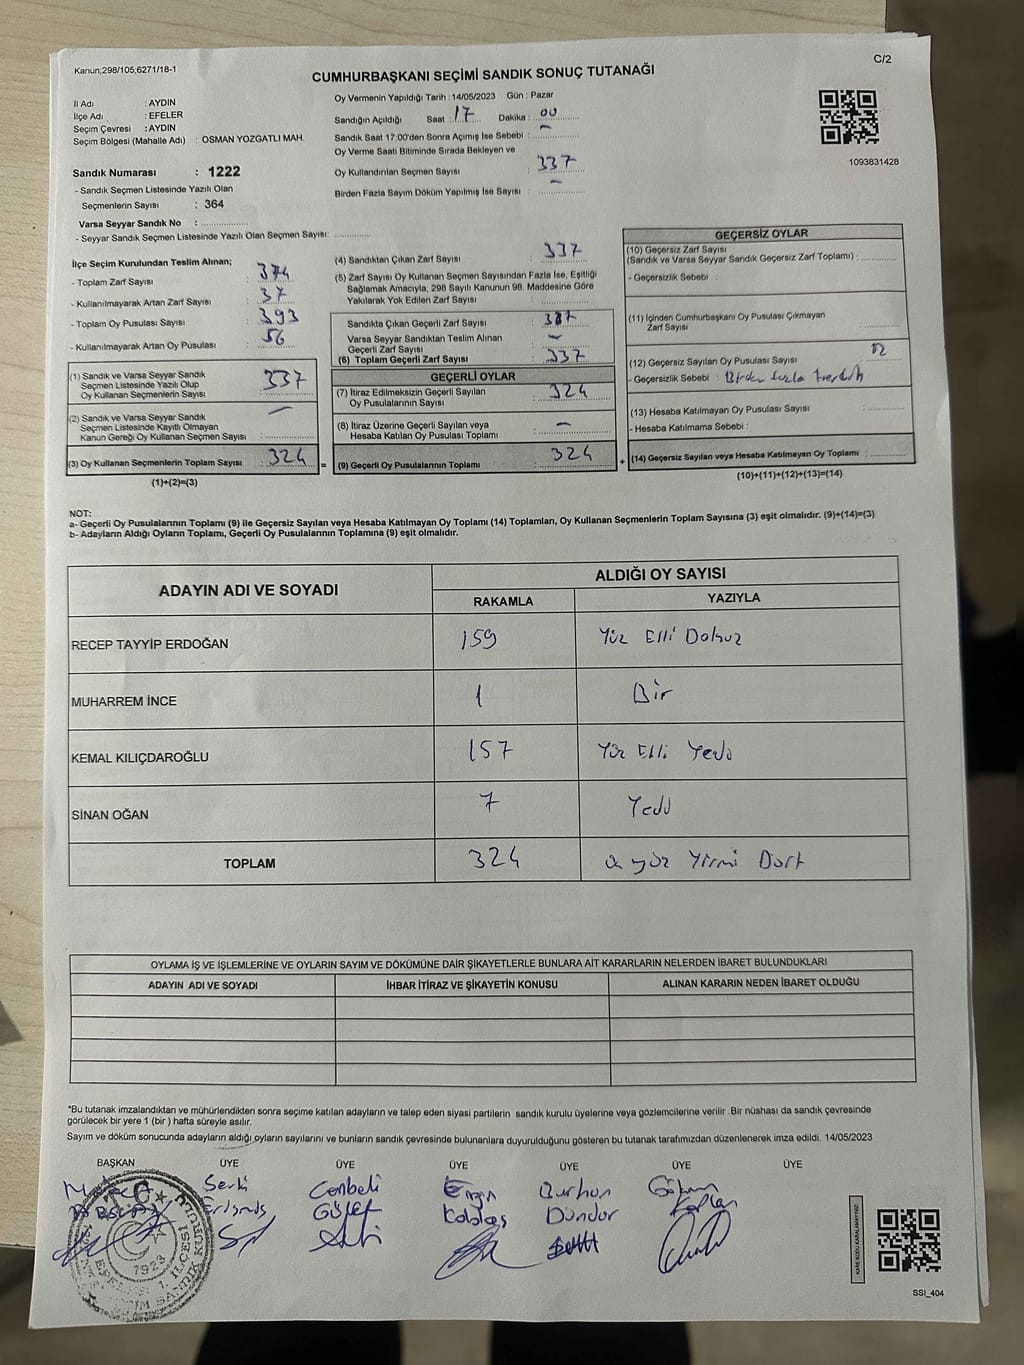 Kanun;298/105;6271/18-1
C/2
CUMHURBAŞKANI SEÇİMİ SANDIK SONUÇ TUTANAĞI
İl Adı : AYDIN
İlçe Adı : EFELER
Seçim Çevresi : AYDIN
Seçim Bölgesi (Mahalle Adı) : OSMAN YOZGATLI MAH.
Sandık Numarası : 1222
- Sandık Seçmen Listesinde Yazılı Olan
Seçmenlerin Sayısı : 364
Varsa Seyyar Sandık No :
- Seyyar Sandık Seçmen Listesinde Yazılı Olan Seçmen Sayısı:
Oy Vermenin Yapıldığı Tarih : 14/05/2023 Gün : Pazar
Sandığın Açıldığı Saat : 17 Dakika : 00
Sandık Saat 17:00'den Sonra Açımış İse Sebebi : -
Oy Verme Saati Bitiminde Sırada Bekleyen ve
Oy Kullandırılan Seçmen Sayısı : 337
Birden Fazla Sayım Döküm Yapılmış İse Sayısı : -
1093831428
İlçe Seçim Kurulundan Teslim Alınan;
- Toplam Zarf Sayısı : 374
- Kullanılmayarak Artan Zarf Sayısı : 37
- Toplam Oy Pusulası Sayısı : 393
- Kullanılmayarak Artan Oy Pusulası : 56
(1) Sandık ve Varsa Seyyar Sandık
Seçmen Listesinde Yazılı Olup
Oy Kullanan Seçmenlerin Sayısı : 337
(2) Sandık ve Varsa Seyyar Sandık
Seçmen Listesinde Kayıtlı Olmayan
Kanun Gereği Oy Kullanan Seçmen Sayısı : -
(3) Oy Kullanan Seçmenlerin Toplam Sayısı : 324
(1)+(2)=(3)
=
(4) Sandıktan Çıkan Zarf Sayısı : 337
(5) Zarf Sayısı Oy Kullanan Seçmen Sayısından Fazla İse, Eşitliği
Sağlamak Amacıyla, 298 Sayılı Kanunun 98. Maddesine Göre
Yakılarak Yok Edilen Zarf Sayısı :
Sandıkta Çıkan Geçerli Zarf Sayısı : 337
Varsa Seyyar Sandıktan Teslim Alınan
Geçerli Zarf Sayısı : -
(6) Toplam Geçerli Zarf Sayısı : 337
GEÇERLİ OYLAR
(7) İtiraz Edilmeksizin Geçerli Sayılan
Oy Pusulalarının Sayısı : 324
(8) İtiraz Üzerine Geçerli Sayılan veya
Hesaba Katılan Oy Pusulası Toplamı : -
(9) Geçerli Oy Pusulalarının Toplamı : 324
+
GEÇERSİZ OYLAR
(10) Geçersiz Zarf Sayısı
(Sandık ve Varsa Seyyar Sandık Geçersiz Zarf Toplamı) :
- Geçersizlik Sebebi :
(11) İçinden Cumhurbaşkanı Oy Pusulası Çıkmayan
Zarf Sayısı :
(12) Geçersiz Sayılan Oy Pusulası Sayısı :
- Geçersizlik Sebebi : Birden fazla
(13) Hesaba Katılmayan Oy Pusulası Sayısı :
- Hesaba Katılmama Sebebi :
(14) Geçersiz Sayılan veya Hesaba Katılmayan Oy Toplamı :
(10)+(11)+(12)+(13)=(14)
NOT:
a- Geçerli Oy Pusulalarının Toplamı (9) ile Geçersiz Sayılan veya Hesaba Katılmayan Oy Toplamı (14) Toplamları, Oy Kullanan Seçmenlerin Toplam Sayısına (3) eşit olmalıdır. (9)+(14)=(3)
b- Adayların Aldığı Oyların Toplamı, Geçerli Oy Pusulalarının Toplamına (9) eşit olmalıdır.
ADAYIN ADI VE SOYADI
ALDIĞI OY SAYISI
RAKAMLA YAZIYLA
RECEP TAYYİP ERDOĞAN 159 Yüz Elli Dokuz
MUHARREM İNCE 1 Bir
KEMAL KILIÇDAROĞLU 157 Yüz Elli Yedi
SİNAN OĞAN 7 Yedi
TOPLAM 324 üç yüz Yirmi Dört
OYLAMA İŞ VE İŞLEMLERİNE VE OYLARIN SAYIM VE DÖKÜMÜNE DAİR ŞİKAYETLERLE BUNLARA AİT KARARLARIN NELERDEN İBARET BULUNDUKLARI
ADAYIN ADI VE SOYADI İHBAR İTİRAZ VE ŞİKAYETİN KONUSU ALINAN KARARIN NEDEN İBARET OLDUĞU
*Bu tutanak imzalandıktan ve mühürlendikten sonra seçime katılan adayların ve talep eden siyasi partilerin sandık kurulu üyelerine veya gözlemcilerine verilir .Bir nüshası da sandık çevresinde
görülecek bir yere 1 (bir ) hafta süreyle asılır.
Sayım ve döküm sonucunda adayların aldığı oyların sayılarını ve bunların sandık çevresinde bulunanlara duyurulduğunu gösteren bu tutanak tarafımızdan düzenlenerek imza edildi. 14/05/2023
BAŞKAN ÜYE ÜYE ÜYE ÜYE ÜYE ÜYE
Canbeli Engin Burhan Gökhan
Dündar Kaplan
T.C.
1923
KARE KODU KARALAMAYINIZ!
SSI_404